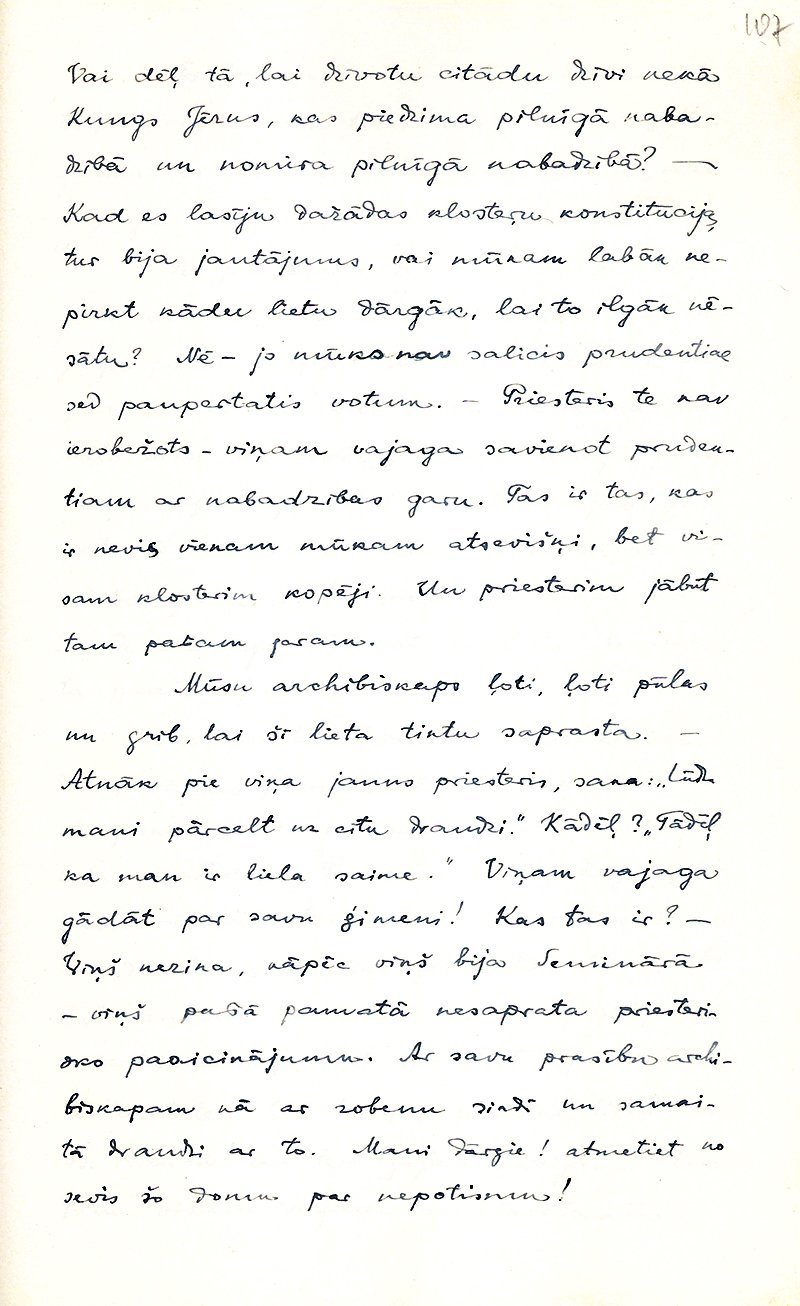 107
Vai dēļ tā, lai dzīvotu citādu dzīvi nekā
Kungs Jēzus, kas piedzima pilnīgā naba-
dzībā un nomira pilnīgā nabadzībā? —
Kad es lasīju dažādas klosteŗu konstitūcijas
tur bija jautājums, vai mūkam labāk ne-
pirkt kādu lietu dārgāk, lai to ilgāk nē-
sātu? Nē – jo mūks nav salicis prudentiae
sed paupertatis votum. – Priesteris te nav
ierobežots – viņam vajaga savienot pruden-
tiam ar nabadzības garu. Tas ir tas, kas
ir nevis vienam mūkam atsevišķi, bet vi-
sam klosterim kopēji. Un priesterim jābūt
tam pašam garam.
Mūsu archibiskaps ļoti, ļoti pūlas
un grib, lai šī lieta tiktu saprasta. –
Atnāk pie viņa jauns priesteris, saka: „Lūdzu
mani pārcelt uz citu draudzi.“ Kādēļ? „Tādēļ
ka man ir liela saime.“ Viņam vajaga
gādāt par savu ģimeni! Kas tas ir? –
Viņš nezina, kāpēc viņš bija Seminārā
– viņš pašā pamatā nesaprata priesteri-
sko paaicinājumu. Ar savu prasību archi-
biskapam kā ar zobenu sirdī un samai-
tā draudzi ar to. Mani dārgie! atmetiet no
sevis šo domu par nepotismu!